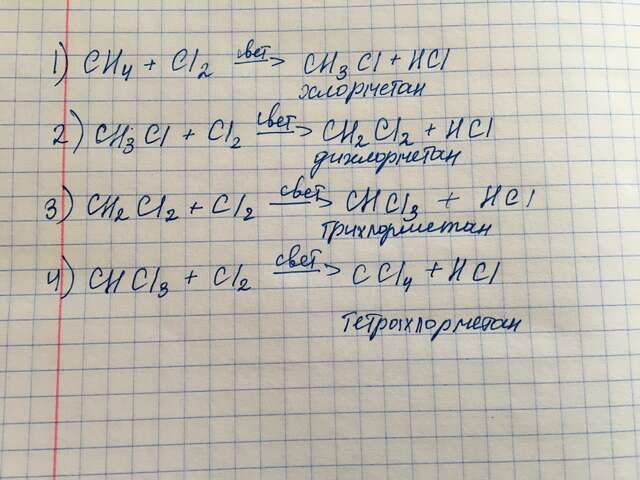 1) CH4 + Cl2 свет→ CH3Cl + HCl
хлорметан
2) CH3Cl + Cl2 свет→ CH2Cl2 + HCl
дихлорметан
3) CH2Cl2 + Cl2 свет→ CHCl3 + HCl
трихлорметан
4) CHCl3 + Cl2 свет→ CCl4 + HCl
тетрахлорметан